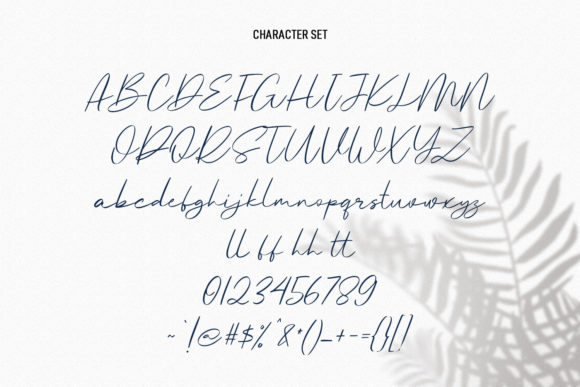 CHARACTER SET
ABCDEFGHIJKLMN
OPQRSTUVWXYZ
abcdefghijklmnopqrstuvwxyz
ll ff hh tt
0123456789
~`!@#$%^&*()_+-={}[]